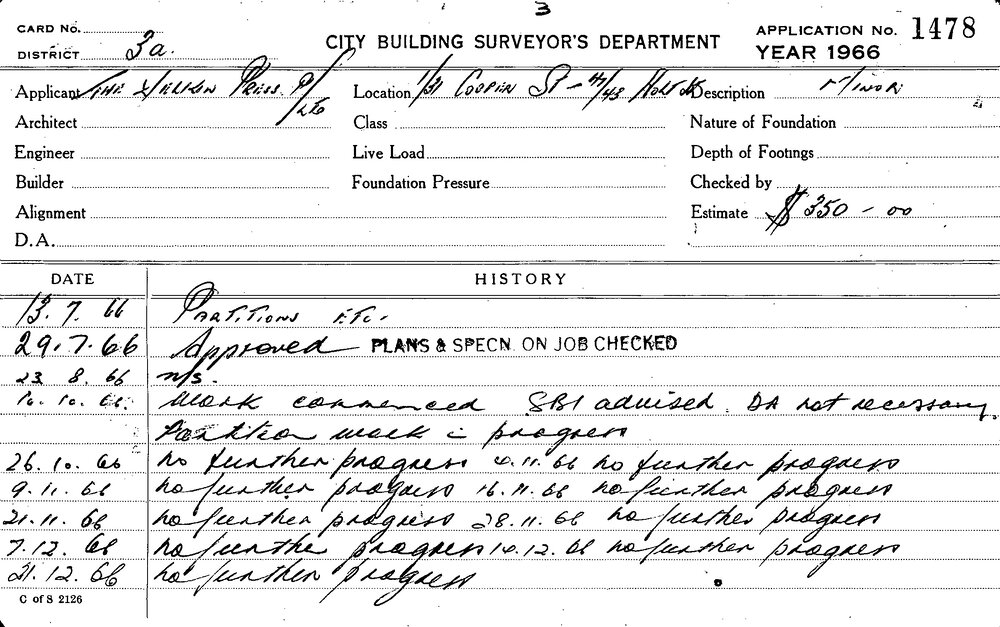 3
CARD No.
DISTRICT 3a.
CITY BUILDING SURVEYOR'S DEPARTMENT
APPLICATION No. 1478
YEAR 1966
Applicant THE Press P/LTD
Location 1/31 COOPER ST - 41/43 HOLT St
Description MINOR
Architect
Class
Nature of Foundation
Engineer
Live Load
Depth of Footings
Builder
Foundation Pressure
Checked by
Alignment
Estimate $350-00
D.A.
DATE HISTORY
13.7.66 PARTITIONS ETC.
29.7.66 Approved PLANS & SPECN. ON JOB CHECKED
23.8.66 n/s.
10.10.66. Work commenced SBI advised. DA not necessary.
Partition work in progress
26.10.66 no further progress 4.11.66 no further progress
9.11.66 no further progress 16.11.66 no further progress
21.11.66 no further progress 28.11.66 no further progress
7.12.66 no further progress 14.12.66 no further progress
21.12.66 no further progress
C of S 2126